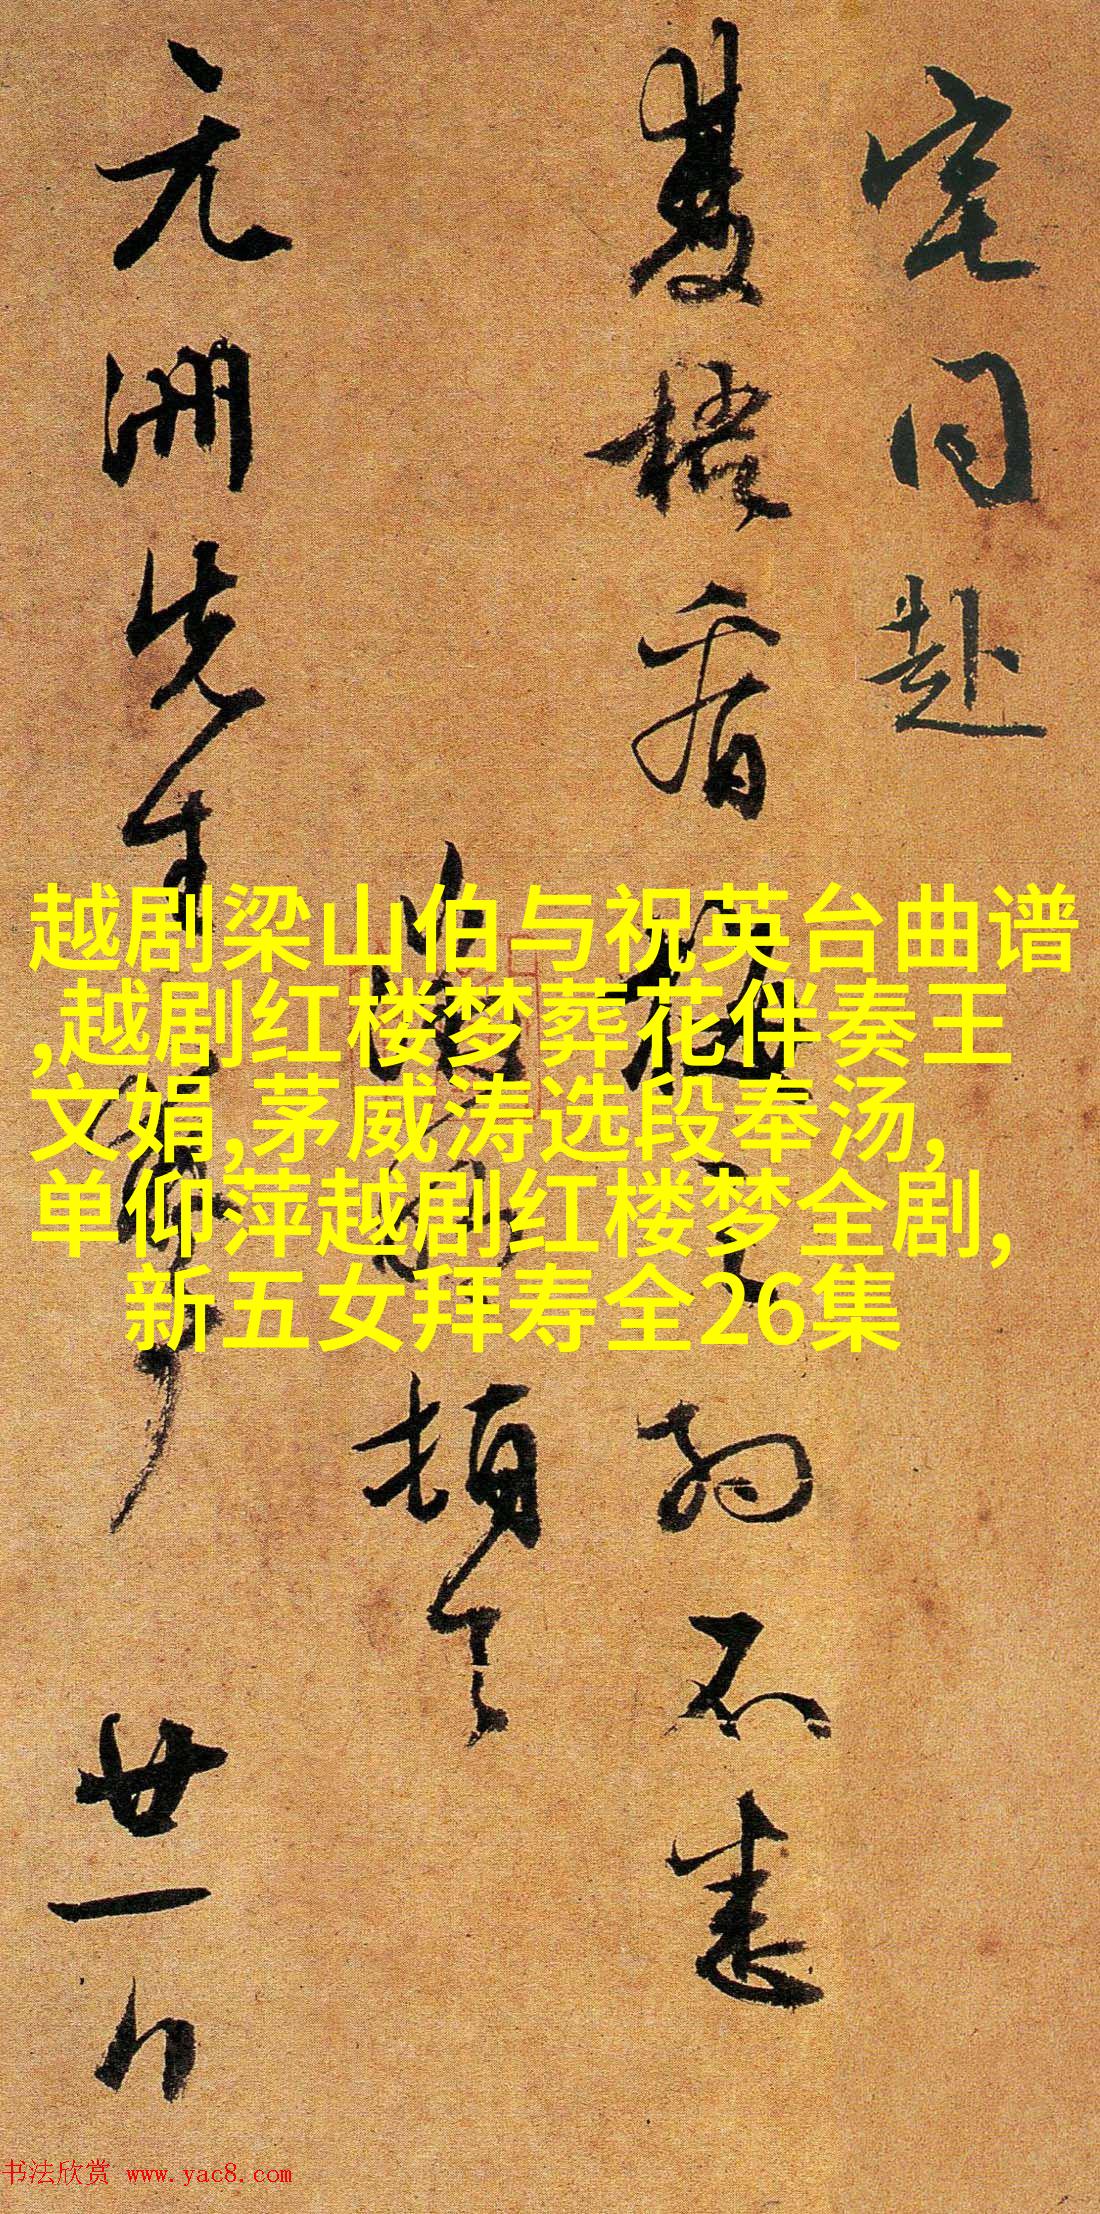 宅同赴
双梧看
不悉
顿首
元洲先生
廿一日
越剧梁山伯与祝英台曲谱
,越剧红楼梦葬花伴奏王
文娟,茅威涛选段奉汤,
单仰萍越剧红楼梦全剧,
新五女拜寿全26集
书法欣赏 www.yac8.com